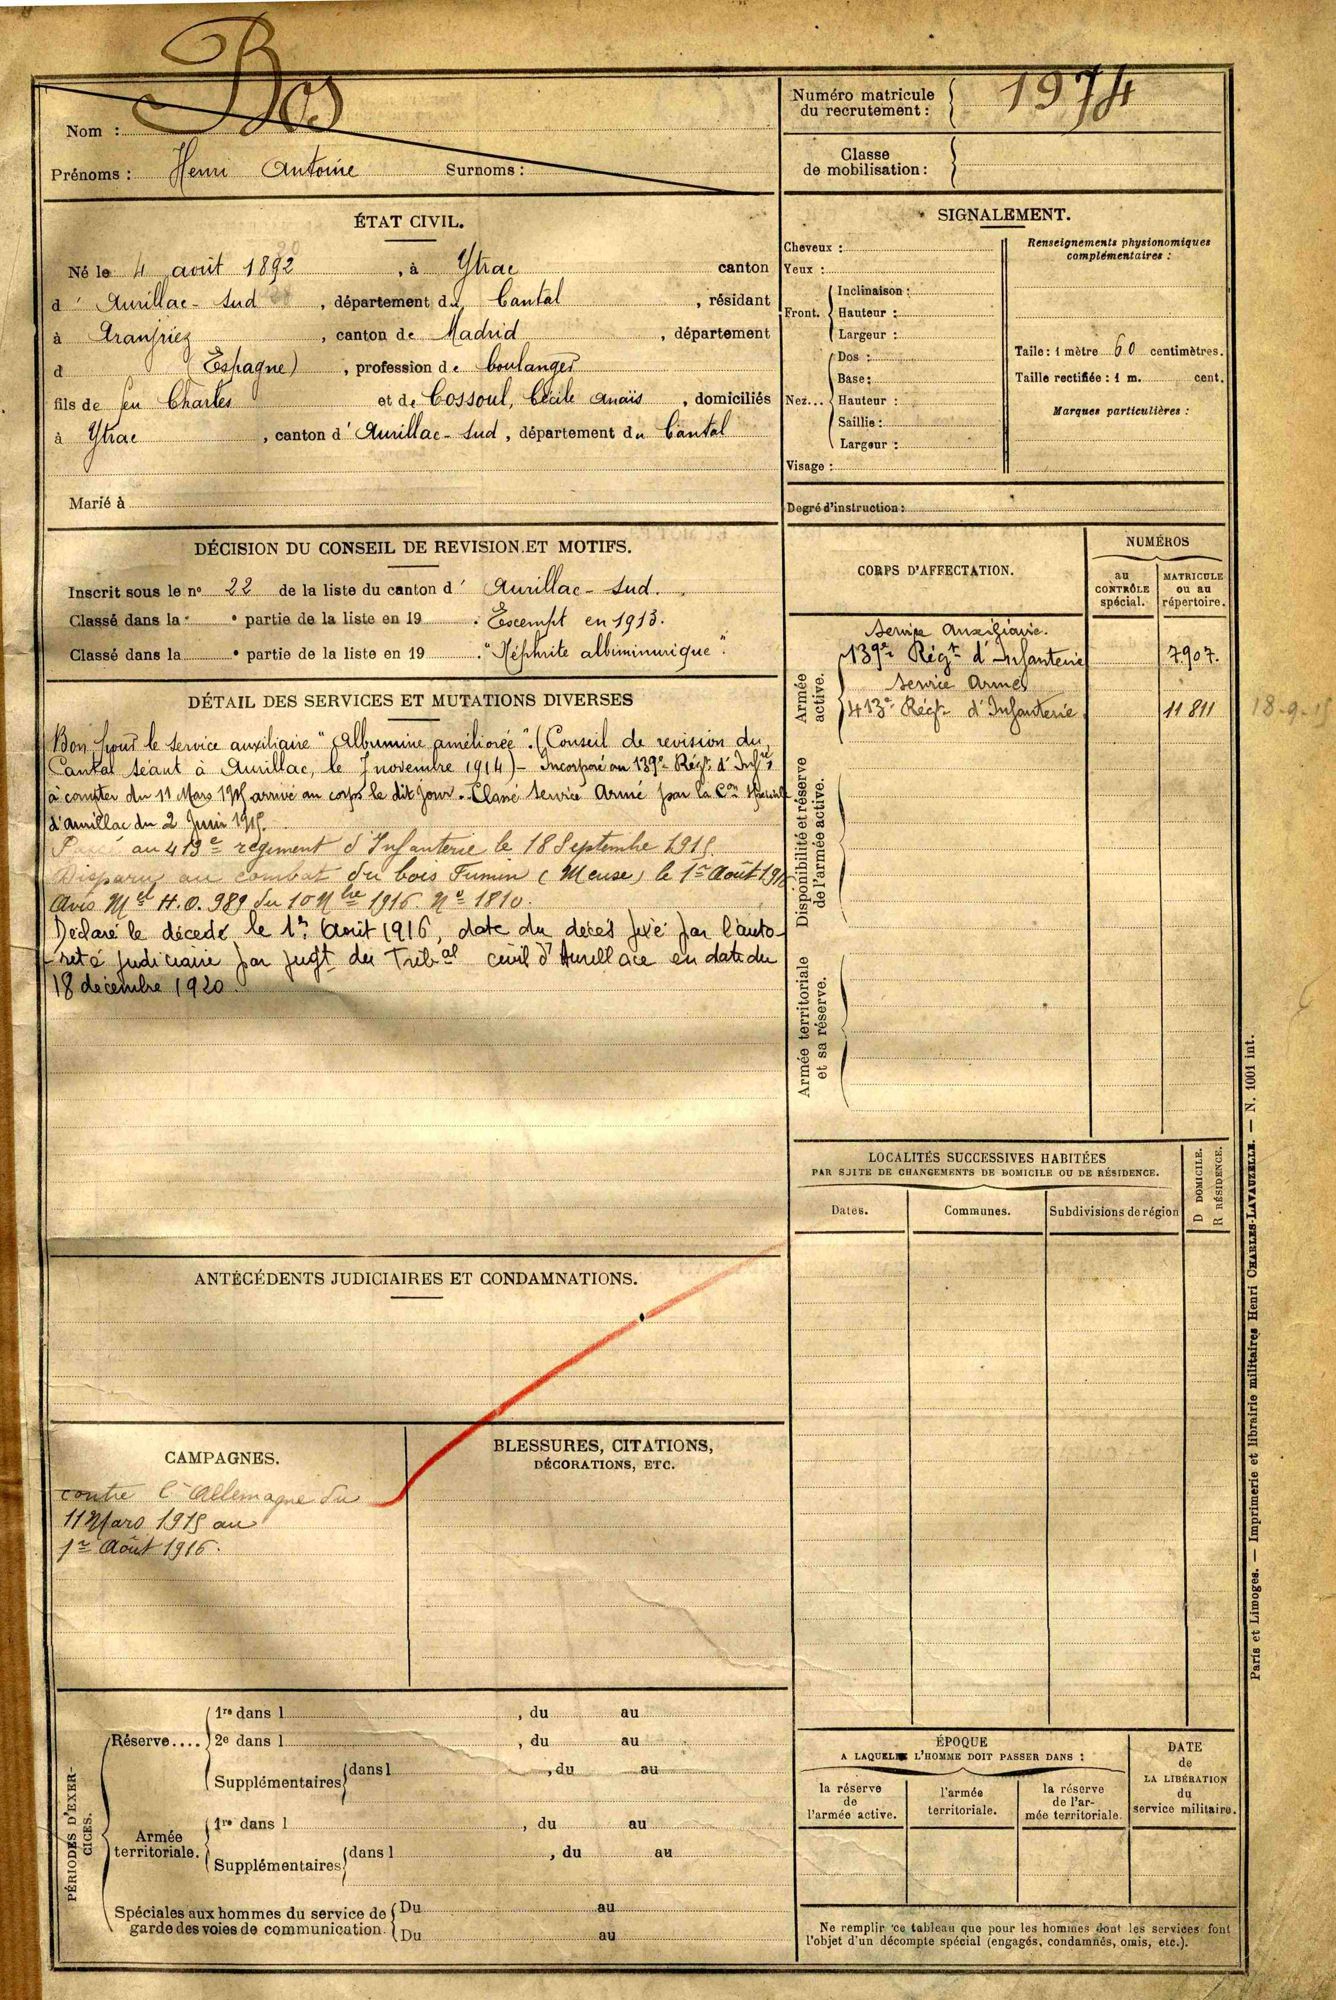 Nom : Bos
Prénoms : Henri Antoine Surnoms :
Numéro matricule du recrutement : 1974
Classe de mobilisation :
ÉTAT CIVIL.
Né le 4 août 1892, à Ytrac canton
d' Aurillac-Sud, département du Cantal, résidant
à Aranjriez, canton de Madrid, département
d (Espagne), profession de boulanger
fils de feu Charles et de Cossoul, Cécile Anaïs, domiciliés
à Ytrac, canton d' Aurillac-Sud, département du Cantal
Marié à
SIGNALEMENT.
Cheveux :
Yeux :
Front. Inclinaison :
Hauteur :
Largeur :
Nez... Dos :
Base :
Hauteur :
Saillie :
Largeur :
Visage :
Renseignements physionomiques
complémentaires :
Taille : 1 mètre 60 centimètres.
Taille rectifiée : 1 m. cent.
Marques particulières :
Degré d'instruction :
DÉCISION DU CONSEIL DE REVISION ET MOTIFS.
Inscrit sous le nº 22 de la liste du canton d' Aurillac-Sud.
Classé dans la partie de la liste en 19 . Exempt en 1913.
Classé dans la partie de la liste en 19 . "Néphrite albiminurique".
DÉTAIL DES SERVICES ET MUTATIONS DIVERSES
Bon pour le service auxiliaire "Albumine améliorée". (Conseil de revision du
Cantal séant à Aurillac, le 7 novembre 1914) - Incorporé au 139e Régt d'Infie
à compter du 11 Mars 1915 arrivé au corps le dit jour. Classé Service Armé par la Con Spéciale
d'Aurillac du 2 Juin 1915.
Passé au 413e régiment d'Infanterie le 18 Septembre 1915.
Disparu au combat du bois Fumin (Meuse) le 1er Août 1916
Avis Mel H.O. 989 du 10 Nbre 1916 Nº 1810.
Déclaré le décédé le 1er Août 1916, date du décès fixé par l'auto-
rité judiciaire par jugt du Tribal civil d'Aurillace en date du
18 décembre 1920.
CORPS D'AFFECTATION.
NUMÉROS
au
CONTRÔLE
spécial.
MATRICULE
ou au
répertoire.
Armée
active.
Service Auxiliaire.
139e Régt d'Infanterie 7907.
Service Armé
413e Régt d'Infanterie. 11811 18-9-15
Disponibilité et réserve
de l'armée active.
Armée territoriale
et sa réserve.
LOCALITÉS SUCCESSIVES HABITÉES
PAR SUITE DE CHANGEMENTS DE DOMICILE OU DE RÉSIDENCE.
Dates. Communes. Subdivisions de région
D DOMICILE.
R RÉSIDENCE.
ANTÉCÉDENTS JUDICIAIRES ET CONDAMNATIONS.
CAMPAGNES.
contre l'Allemagne du
11 Mars 1915 au
1er Août 1916.
BLESSURES, CITATIONS,
DÉCORATIONS, ETC.
PÉRIODES D'EXER-
CICES.
Réserve.... 1re dans l , du au
2e dans l , du au
Supplémentaires dans l , du au
Armée
territoriale. 1re dans l , du au
Supplémentaires dans l , du au
Spéciales aux hommes du service de
garde des voies de communication. Du au
Du au
ÉPOQUE
A LAQUELLE L'HOMME DOIT PASSER DANS :
la réserve
de
l'armée active.
l'armée
territoriale.
la réserve
de l'ar-
mée territoriale.
DATE
de
LA LIBÉRATION
du
service militaire.
Ne remplir ce tableau que pour les hommes dont les services font
l'objet d'un décompte spécial (engagés, condamnés, omis, etc.).
Paris et Limoges. — Imprimerie et librairie militaires Henri CHARLES-LAVAUZELLE. — N. 1001 int.